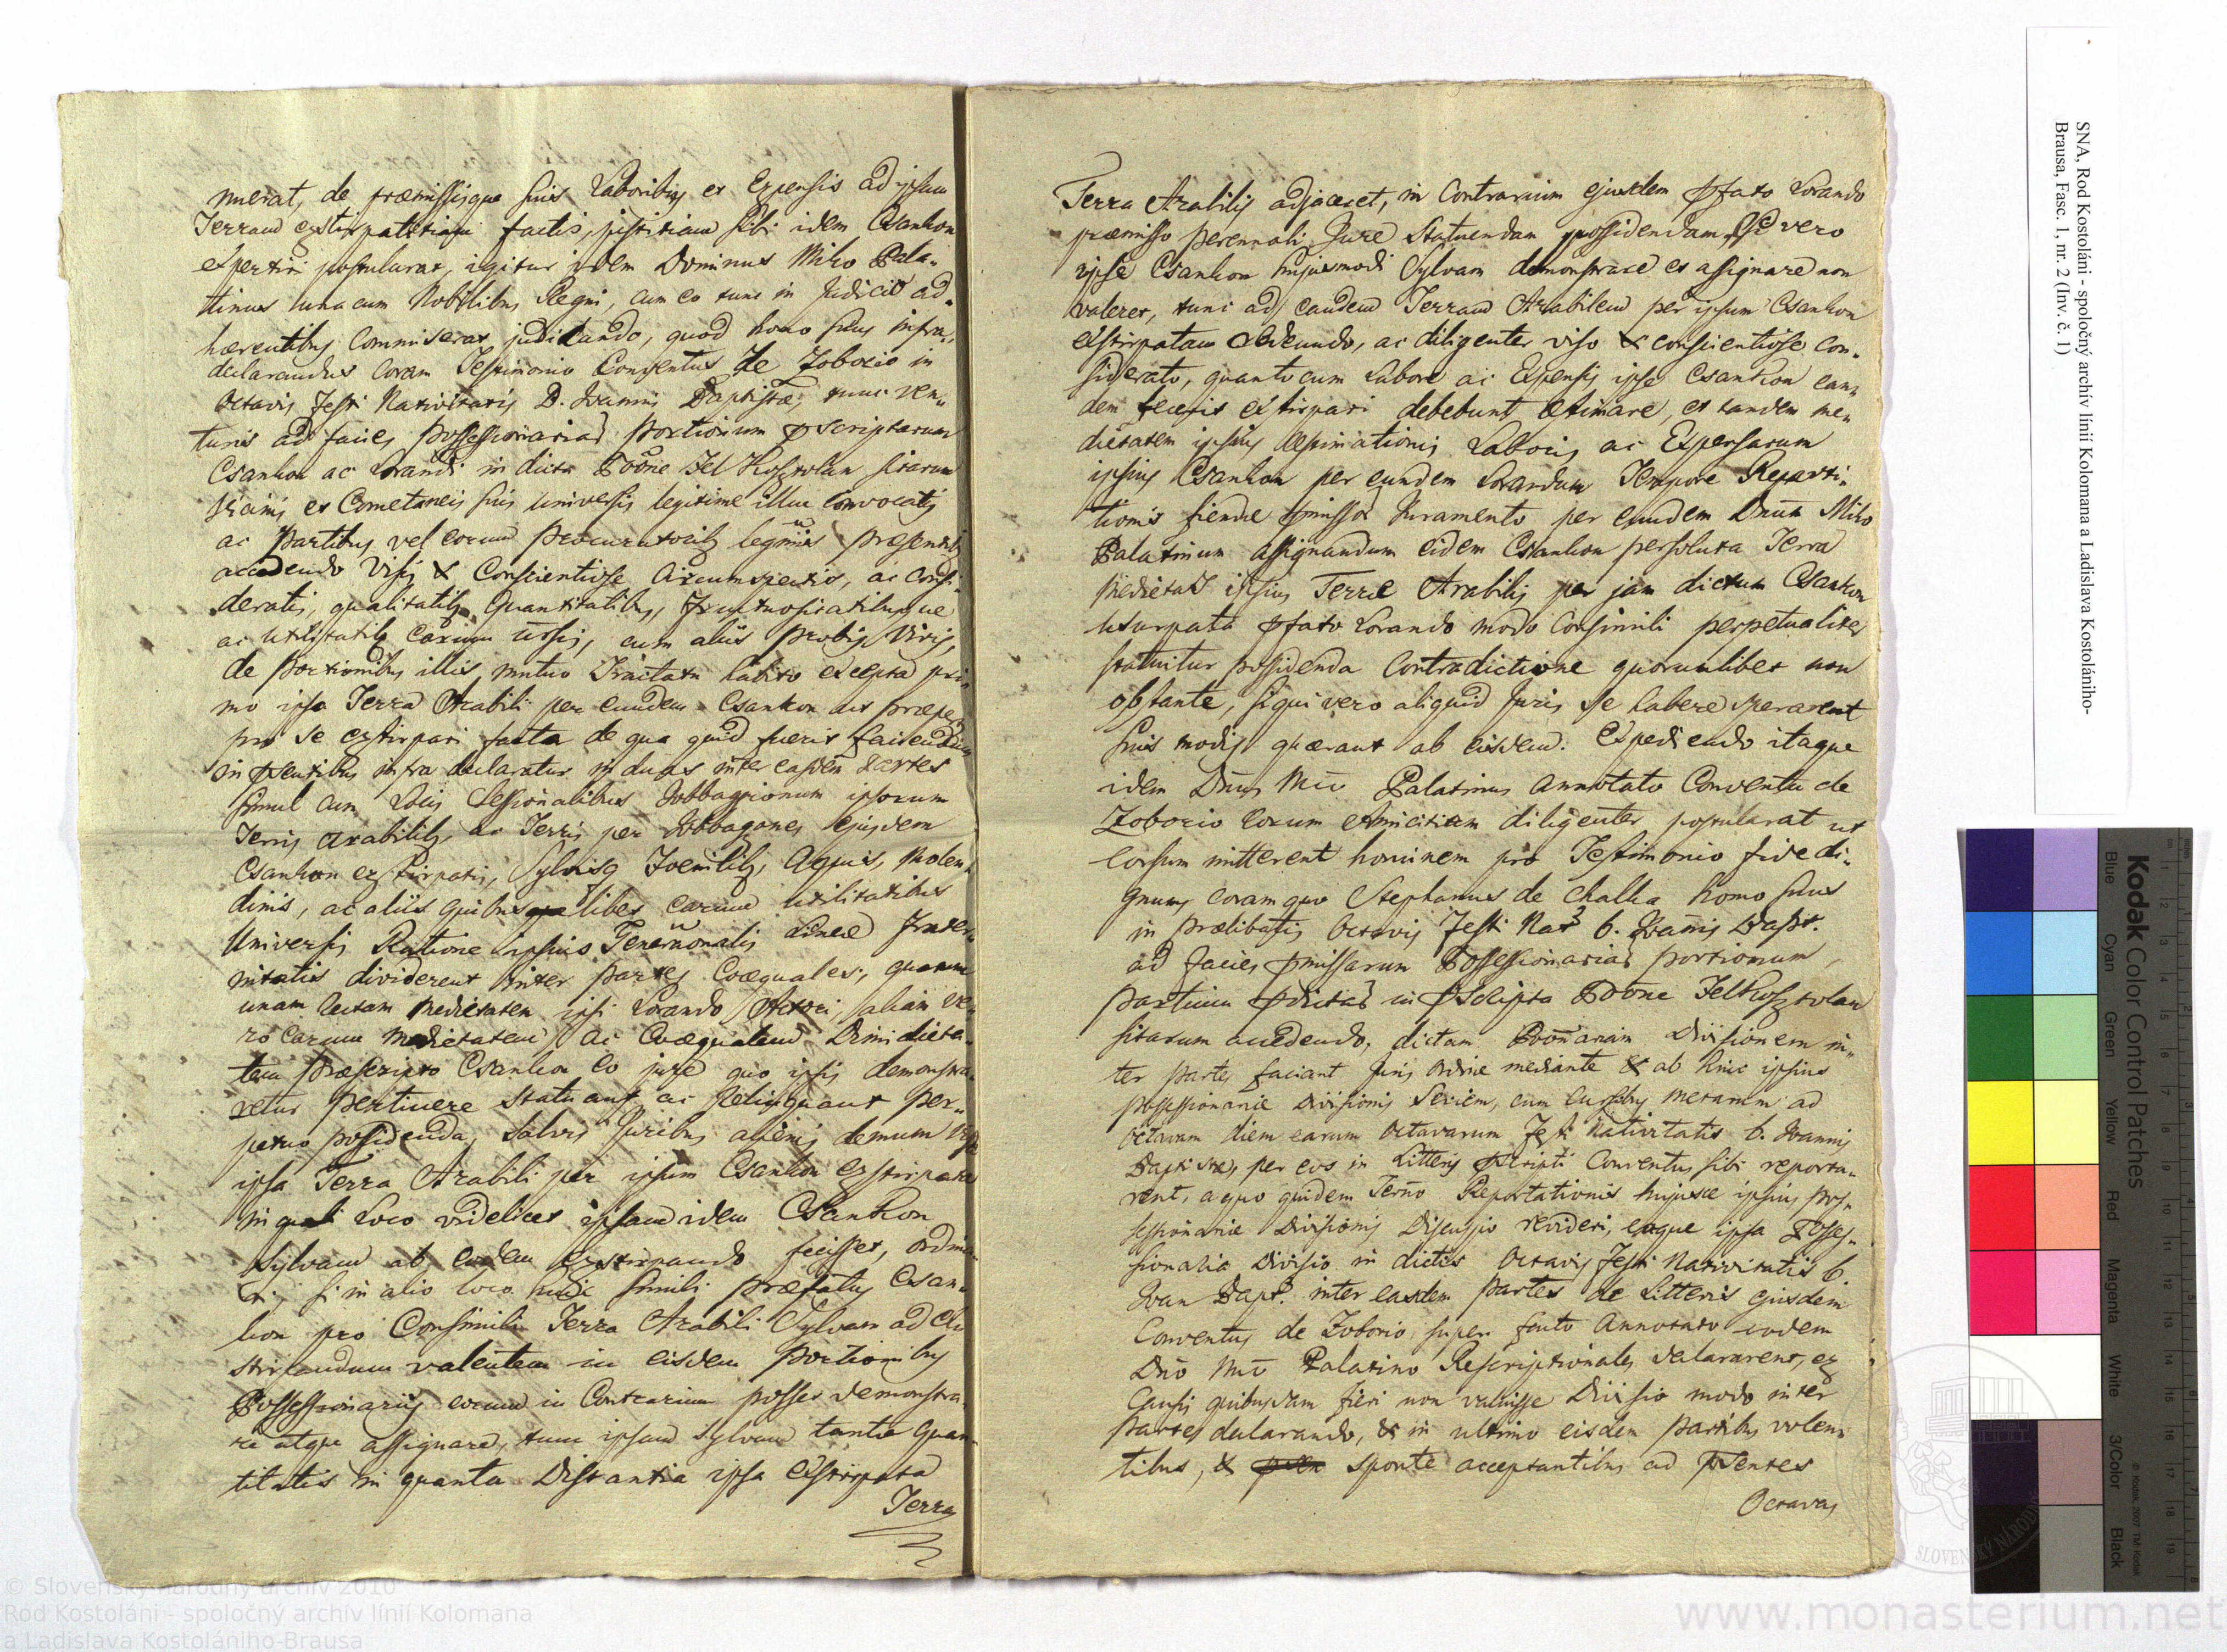 nuerat, de præmissisque suis Laboribus et Expensis ad ipsam
Terram exstirpatitiam factis, justitiam sibi idem Csankon
expertiri postularat, igitur idem Dominus Miko Pala-
tinus una cum Nobilibus Regni, cum eo tunc in Judicio ad-
hærentibus Commiserat judicando, quod homo suus infra
declarandus Coram Testimonio Conventus de Zoborio in
Octavis Festi Nativitatis B. Joannis Baptistæ, tunc ven-
turis ad facies possessionariar portionum pscriptarum
Csankon ac Lorandi in dicta Poone Fel Kosztolan sitarum
Vicinis et Cometaneis suis universis legitime illuc convocatis
ac Partibus vel eorum Procuratorib legmis præsentib
accedendo Visis & Conscientiose Circumspectis, ac consi-
deratis, qualitatib Quantitatibus, Fructuositatibusque
ac Utilitatib Earum ursis, cum aliis Probis Viris,
de Portionibus illis mutuo Tractatu habito excepta pri-
mo ipsa Terra Arabili per eundem Csankon
pro se exstirpari facta de qua quid fuerit faciendum
in psentibus infra declaratur in duas inter easdem Partes
simul cum Locis Sessionalibus Jobbagionum ipsorum
Terris arabilib, ac Terris per Jobbagones ejusdem
Csankon exstirpatis, Sylvisq Foenilib, Aquis, Molen-
dinis, ac aliis quibuslibet earum utilitatibus
Universis Ratione ipsius Lineæ Frater-
nitatis dividerent inter partes Coæquales, quarum
unam rectam medietatem ipsi Lorando Actori, aliam ve-
ro earum medietatem ac Coæqualem Dimidieta-
tem Præscripto Csankon eo jure quo ipsis demonstra-
retur pertinere statuant ac relinquant per-
petuo possidenda, salvis Juribus alienis demum
ipsa Terra Arabili per ipsum Csankon exstirpata
in quali Loco videlicet ipsam idem Csankon
Sylvam ab eadem exstirpando fecisset,
si in alio loco huic simili præfatus Csan-
kon pro Consimili Terra Arabili Sylvam ad ex-
stirpandum valentem in eisdem Portionibus
Possessionariis eorum in Contrarium posset demonstra-
re atque assignare, tunc ipsam Sylvam tantæ Quan-
titatis in quanta Distantia ipsa exstirpata
Terra
Terra Arabilis adjaceret, in Contrarium ejusdem pfato Lorando
præmisso perennali Jure Statuendam possidendam. Si vero
ipse Csankon hujusmodi Sylvam demonstrare et assignare non
valeret, tunc ad eandem Terram Arabilem per ipsum Csankon
exstirpatam redeundo, ac diligenter viso & conscientiose con-
siderato, quanto cum Labore ac Expensis ipse Csankon ean-
dem fecerit exstirpari debebunt æstimare, et tandem me-
dietatem ipsius æstimationis Laboris ac Expensarum
ipsius Csankon per eundem Lorandum Tempore Reparti-
tionis fiendæ pmisso Juramento per eundem Dnum Miko
Palatinum assignandum eidem Csankon persoluta Terra
medietas ipsius Terræ Arabilis per jam dictum Csankon
usurpata pfato Lorando modo consimili perpetualiter
statuitur possidenda Contradictione quorumlibet non
obstante, siqui vero aliquid Juris se habere sperarent
suis modis quærant ab eisdem. Expediendo itaque
idem Dnus Mic Palatinus Annotato Conventu de
Zoborio eorum Amicitiam diligenter postularat ut
eorsum mitterent hominem pro Testimonio fide di-
gnum, coram quo Stephanus de Chalka homo suus
in prælibatis Octavis Festi Nat B. Joannis Bapt.
ad facies pmissarum Possessionariar portionum,
partium pdictar in pscripta Poone Felkosztolan
sitarum accedendo, dictam Poonariam Divisionem in-
ter partes faciant Juris ordine mediante & ab hinc ipsius
possessionariæ Divisionis Seriem, cum Cursibus metarum ad
octavum diem earum Octavarum Festi Nativitatis b. Joannis
Baptistæ, per eos in Litteris pscripti Conventus sibi reporta-
rent, a quo quidem Terno Reportationis hujusce ipsius pos-
sessionariæ Divisionis Discussio revideri, eaque ipsa Posses-
sionaria Divisio in dictis Octavis Festi Nativitatis b.
Joan Bapt. inter easdem Partes de Litteris ejusdem
Conventus de Zoborio super facto Annotato eodem
Dno Mic Palatino Rescriptionales declararent, ex
Causis quibusdam fieri non valuisse Divisio modo inter
Partes declarando, & in ultimo eisdem partibus volen-
tibus, & sponte acceptantibus ad psentes
Octavas
SNA, Rod Kostoláni - spoločný archív línií Kolomana a Ladislava Kostolániho-
Brausa, Fasc. 1, nr. 2 (Inv. č. 1)
Kodak Color Control Patches
Blue Cyan Green Yellow Red Magenta White 3/Color Black
© Kodak, 2007 TM: Kodak
© Slovenský národný archív 2010
Rod Kostoláni - spoločný archív línií Kolomana
a Ladislava Kostolániho-Brausa
SLOVENSKÝ NÁROD
www.monasterium.net